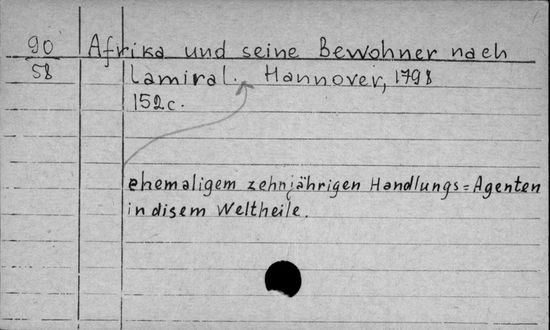 90
58
Afrika und seine Bewohner nach
Lamiral. Hannover, 1798
152c.
ehemaligem zehnjährigen Handlungs=Agenten
in disem Weltheile.